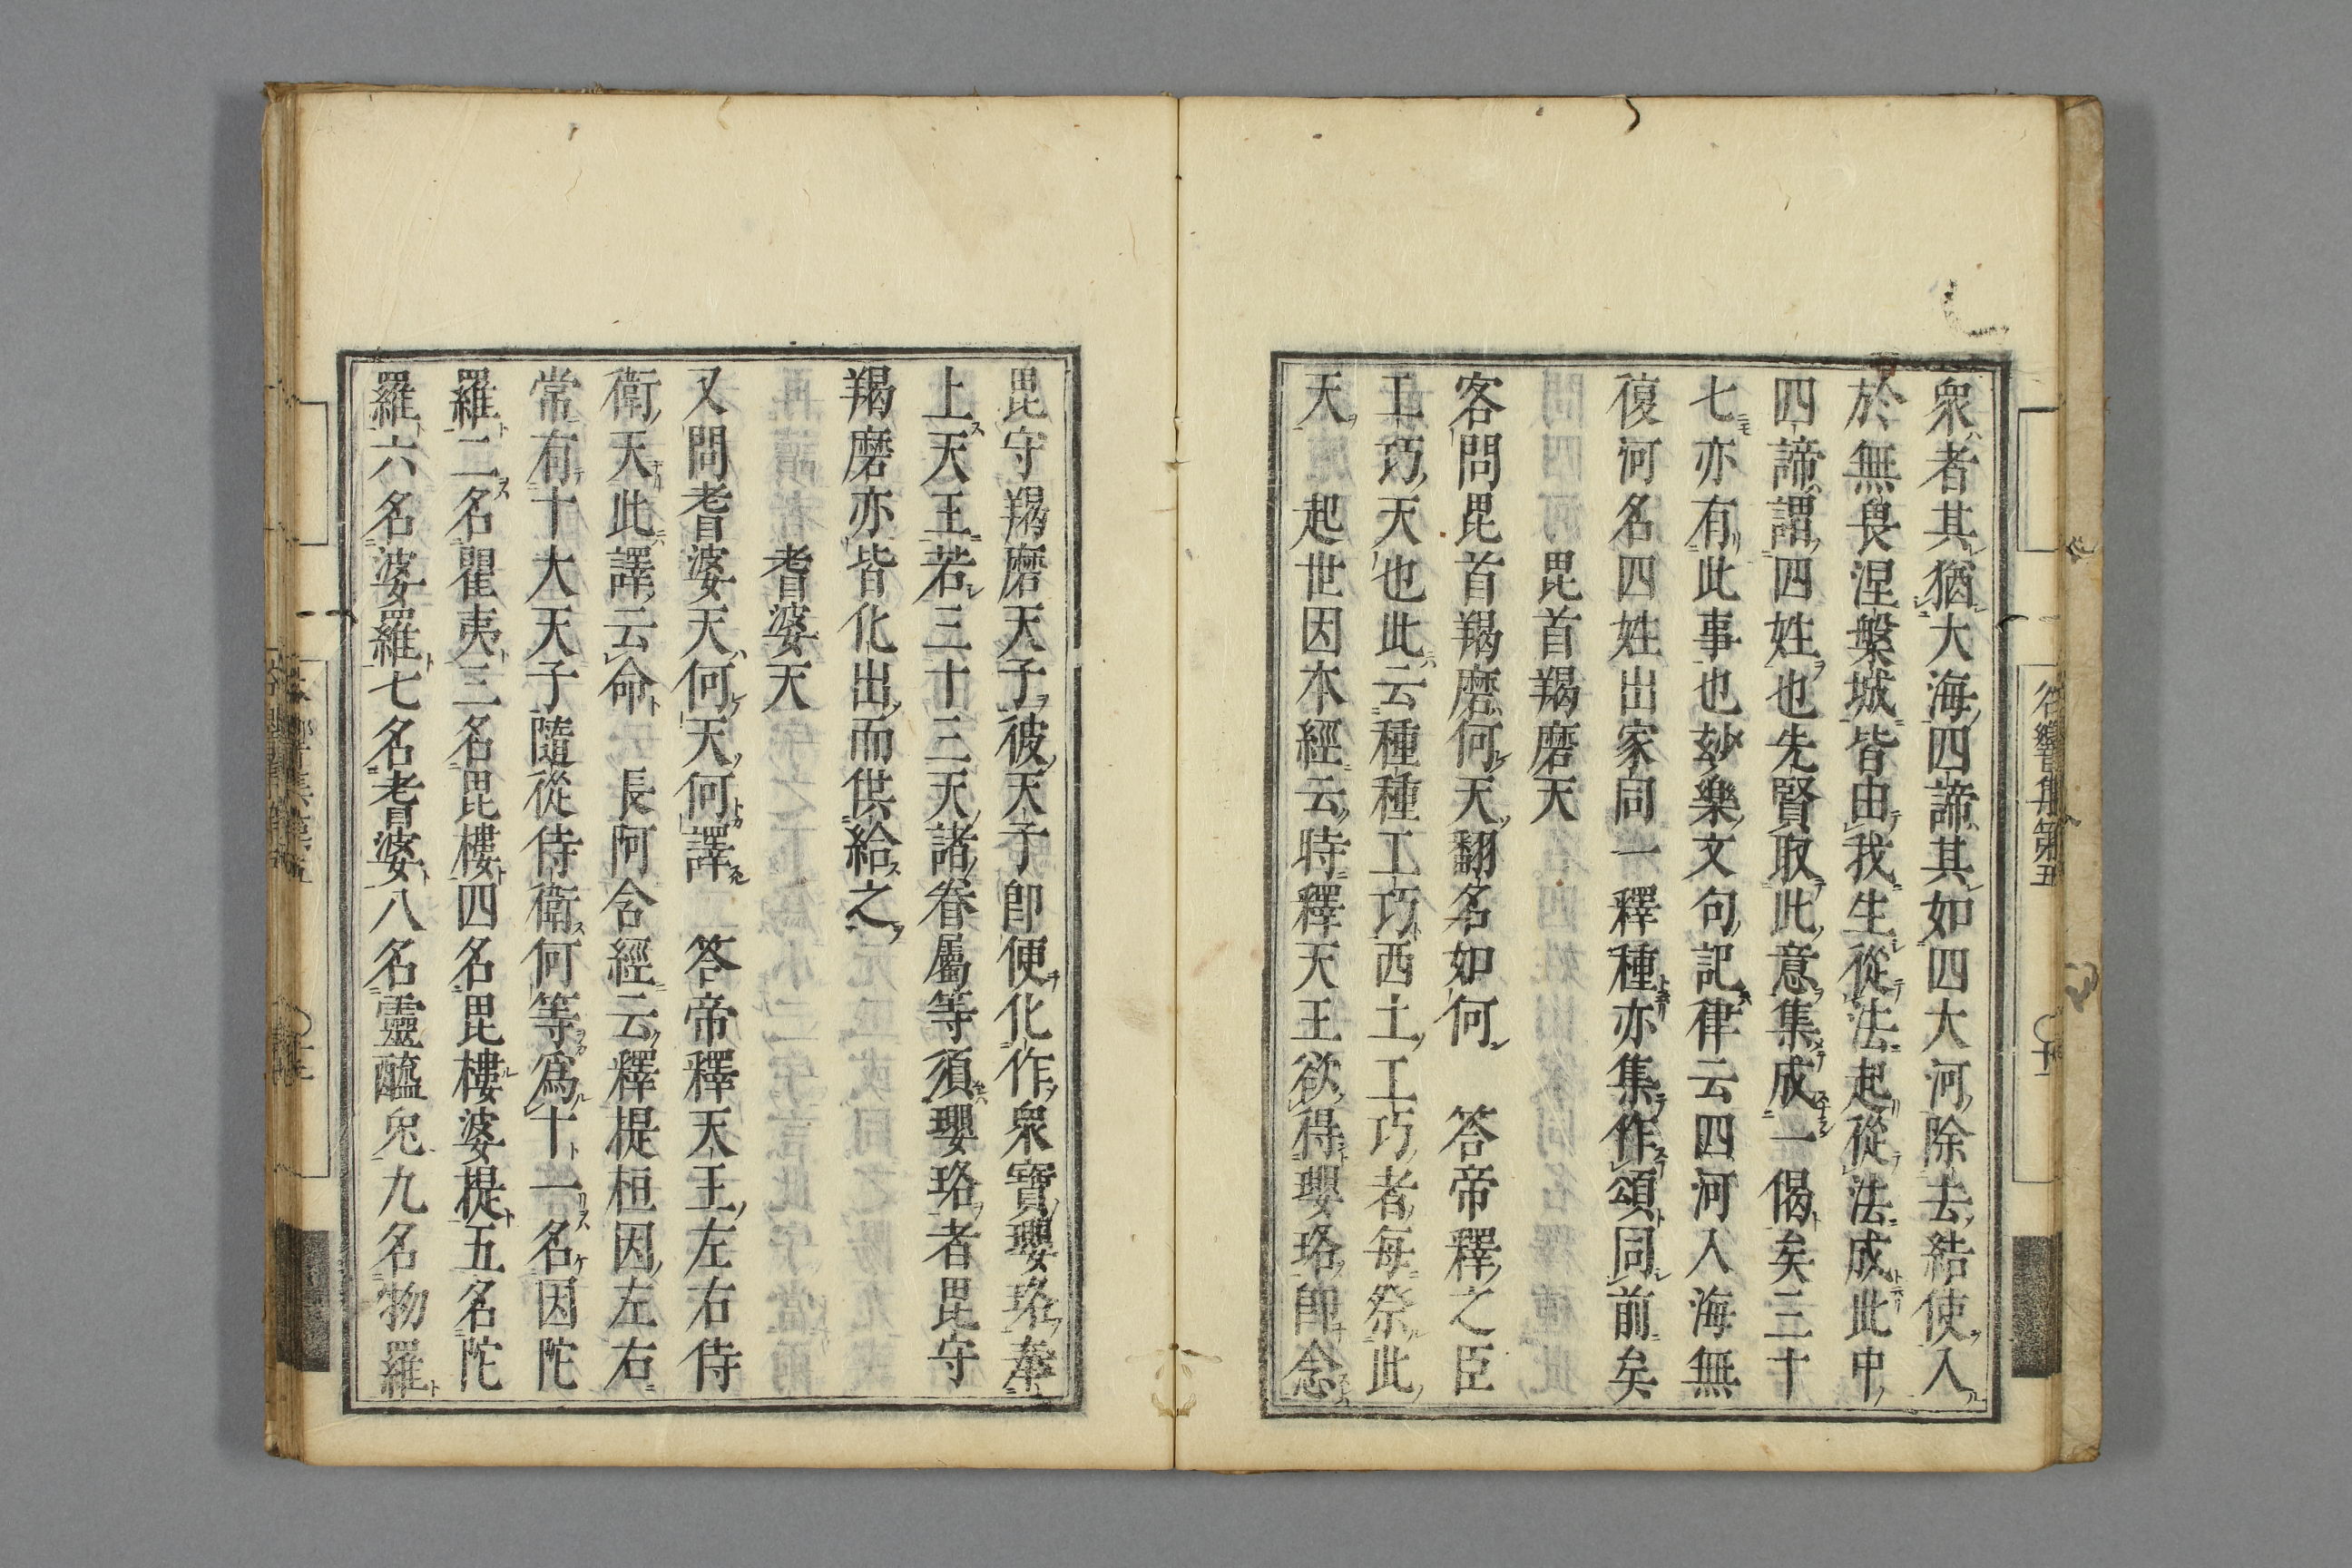 衆者其猶大海四諦其如四大河除去結使入
於無畏涅槃城皆由我生從法起從法成此中
四諦謂四姓也先賢取此意集成一偈矣三十
七亦有此事也玅樂文句記律云四河入海無
復河名四姓出家同一釋種亦集作頌同前矣
毘首羯磨天
客問毘首羯磨何天翻名如何　答帝釋之臣
工巧天也此云種種工巧西土工巧者每祭此
天　起世因本經云時釋天王欲得瓔珞卽念
毘守羯磨天子彼天子卽便化作衆寶瓔珞奉
上天王若三十三天諸眷屬等須瓔珞者毘守
羯磨亦皆化出而供給之
耆婆天
又問耆婆天何天何譯　答帝釋天王左右侍
衛天此譯云命　長阿含經云釋提桓因左右
常有十大天子隨從侍衛何等爲十一名因陀
羅二名瞿夷三名毘樓四名毘樓婆提五名陀
羅六名婆羅七名耆婆八名靈醯兔九名物羅
谷響集第五
○十二